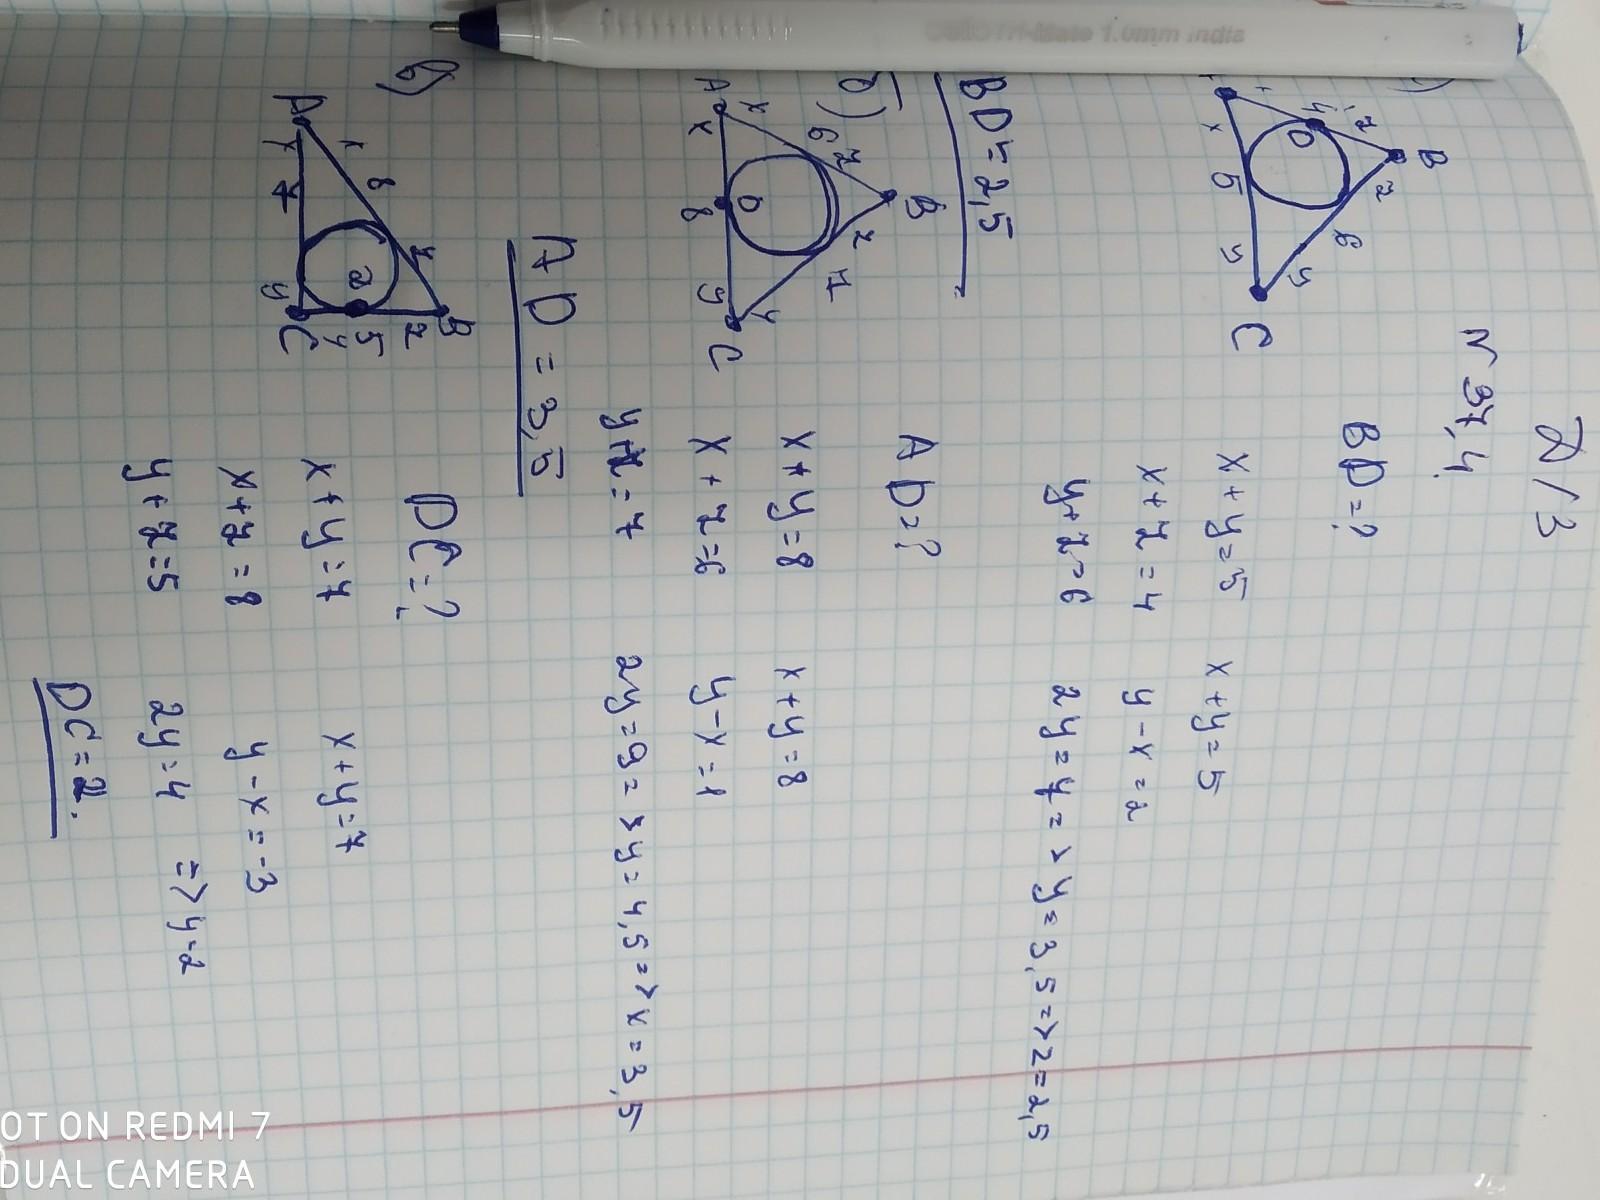 Д/З
N 374
BD=?
x+y=5
x+z=4
y+z=6
x+y=5
y-x=2
2y=7=>y=3,5=>z=2,5
B
z
z
4
D
x
5
y
6
y
C
BD=2,5
б)
AD=?
x+y=8
x+z=6
y+z=7
x+y=8
y-x=1
2y=9=>y=4,5=>x=3,5
A
x
x
6
z
B
z
7
D
8
y
y
C
AD=3,5
в)
DC=?
x+y=7
x+z=8
y+z=5
x+y=7
y-x=-3
2y=4 =>y=2
A
x
8
7
B
z
5
y
y
C
DC=2.
1.0mm India
OT ON REDMI 7
DUAL CAMERA